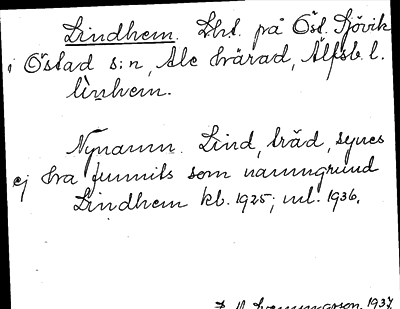 Lindhem. Lht. på Öst. Sjövik
i Östad s:n, Ale härad, Älfsb. l.
lìnhem.
Nynamn. Lind, träd, synes
ej ha funnits som namngrund
Lindhem kb. 1925; ml. 1936.
1937